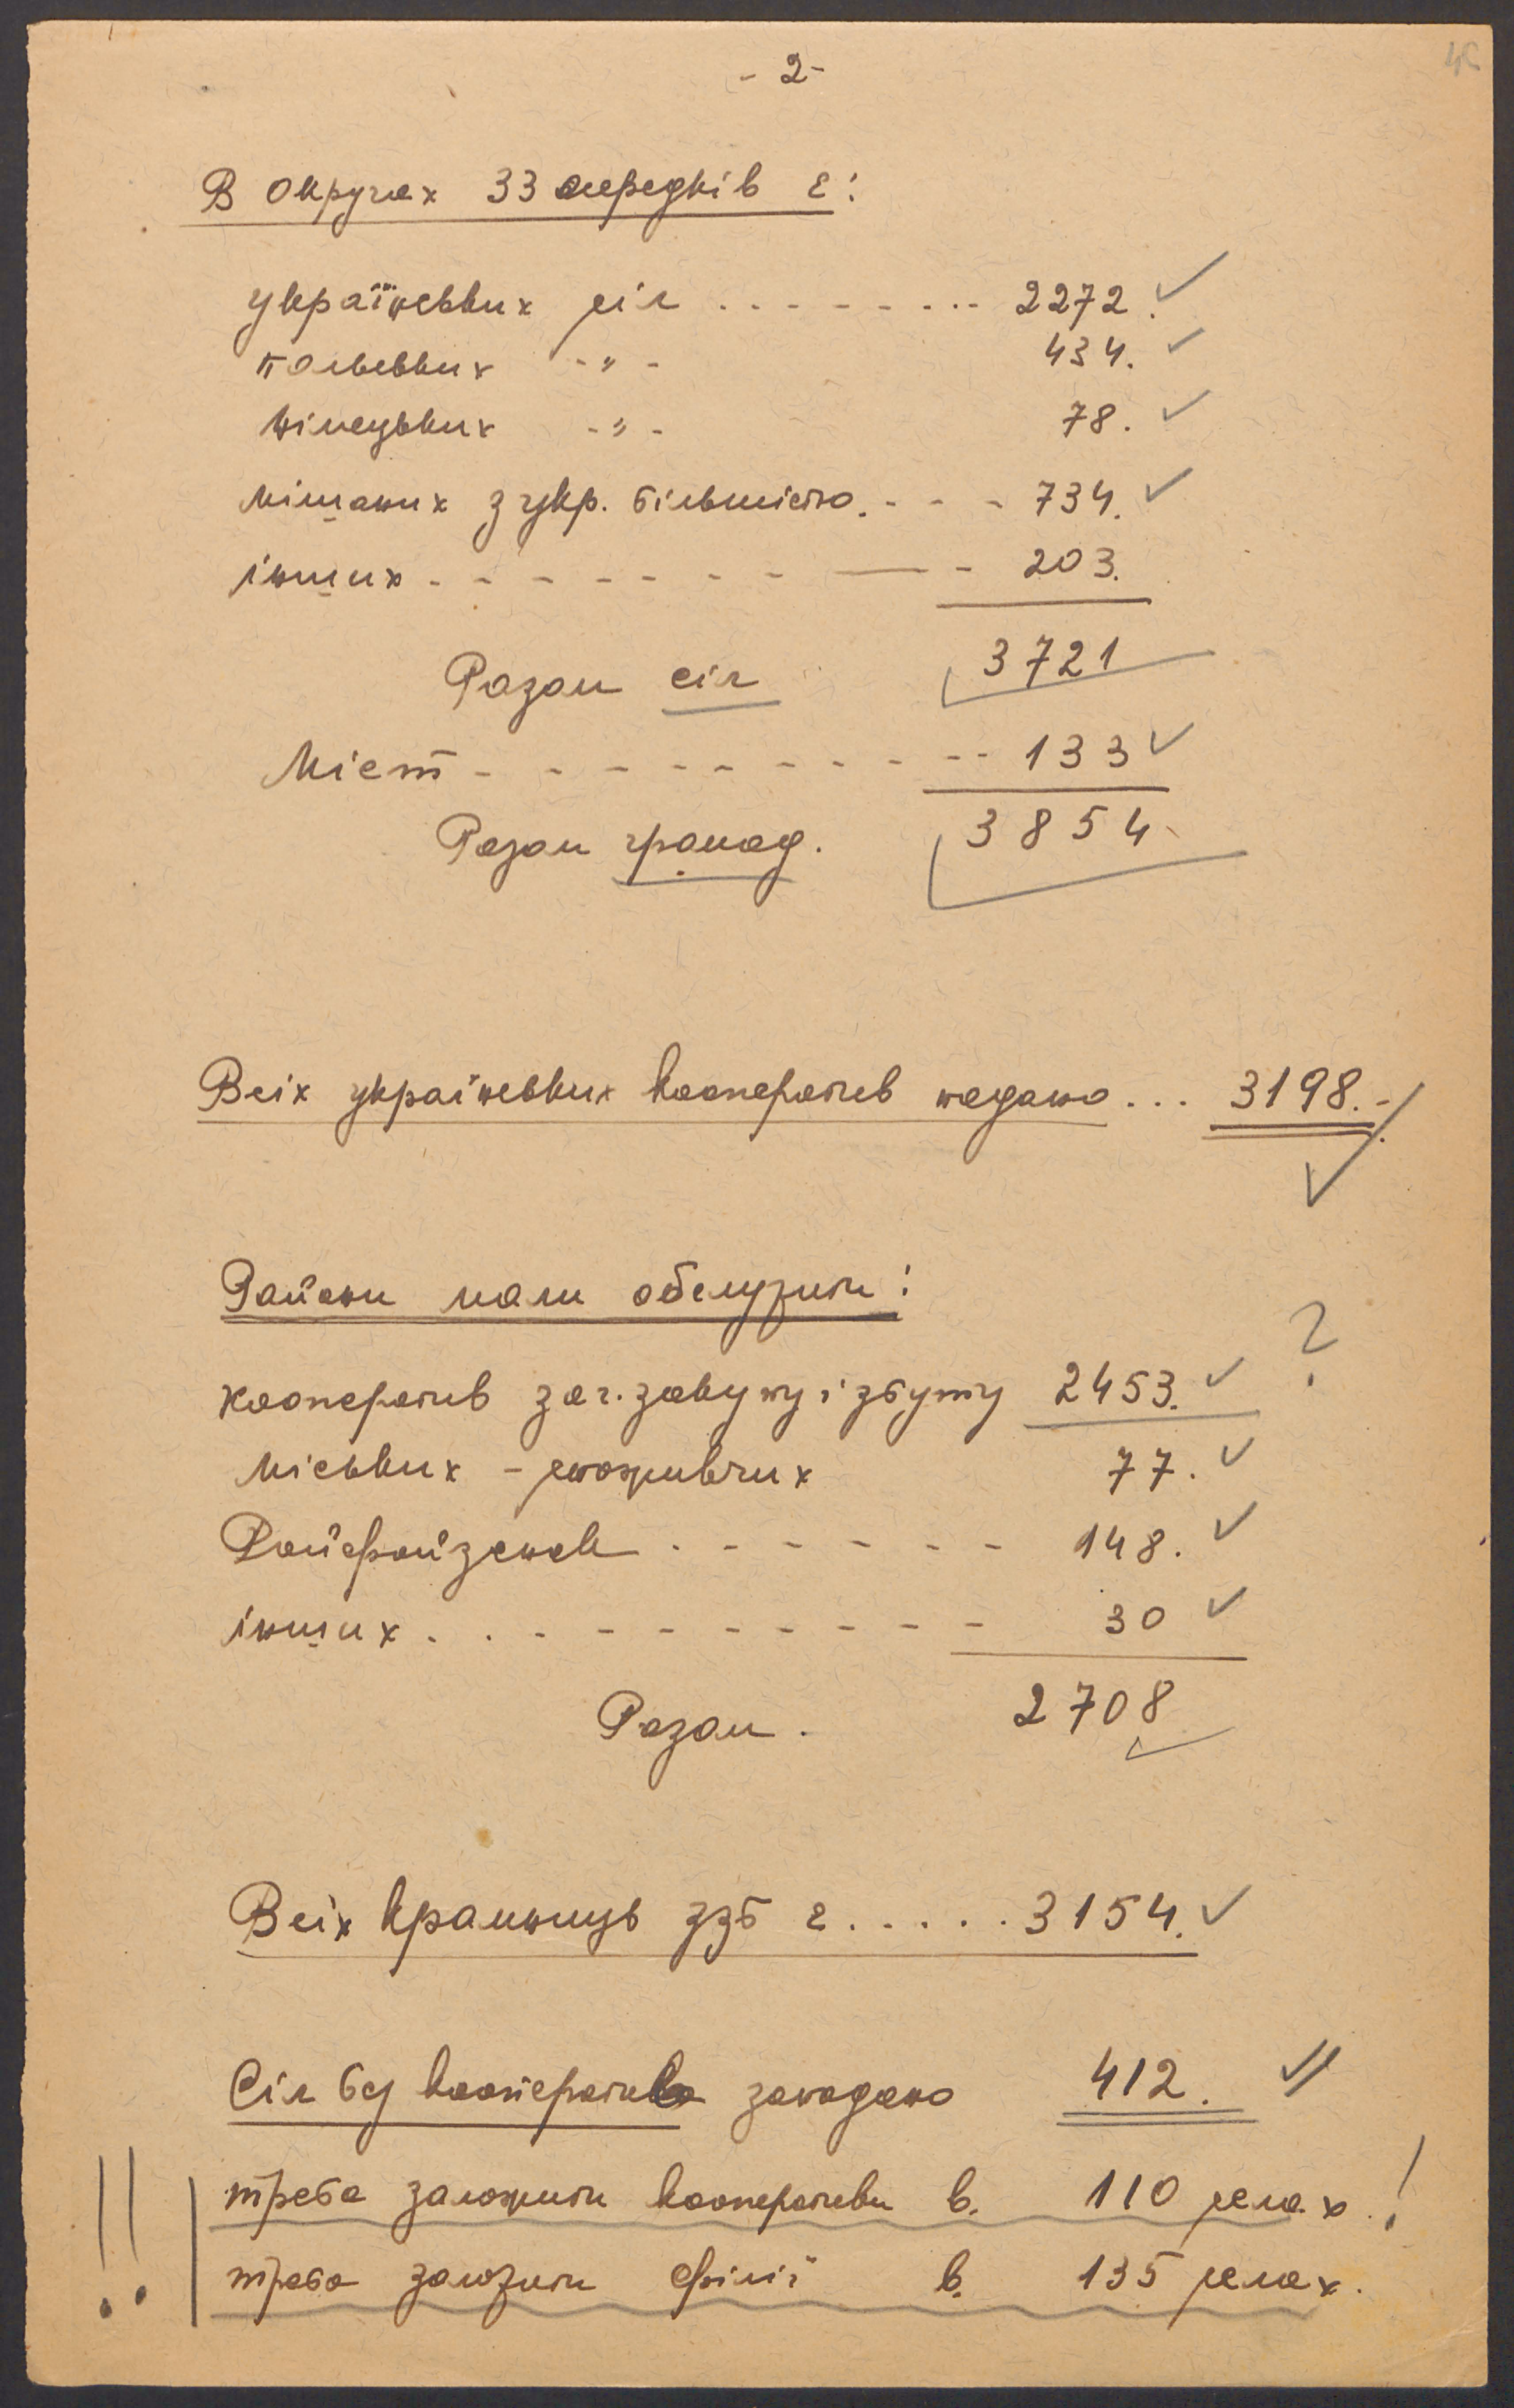 - 2 -
В округах 33 осередків є:
українських сіл . . . . . . . . 2272.
польських - " - 434.
німецьких - " - 78.
мішаних з укр. більшістю. - - - 734.
інших - - - - - - - - — - 203.
Разом сіл 3721
Міст - - - - - - - - - - 133
Разом громад. 3854
Всіх українських кооператив надано . . . 3198.-
Райони мали обслужити:
кооператив заг. закупу і збуту 2453. ?
міських - споживчих 77.
Райфайзенок . - - - - - - 148.
інших . . - - - - - - - - 30
Разом . 2708
Всіх крамниць ззб є . . . . . 3154.
Сіл без кооператив занадано 412.
!! треба заложити кооперативи в. 110 селах. !
треба заложити філії в. 135 селах.